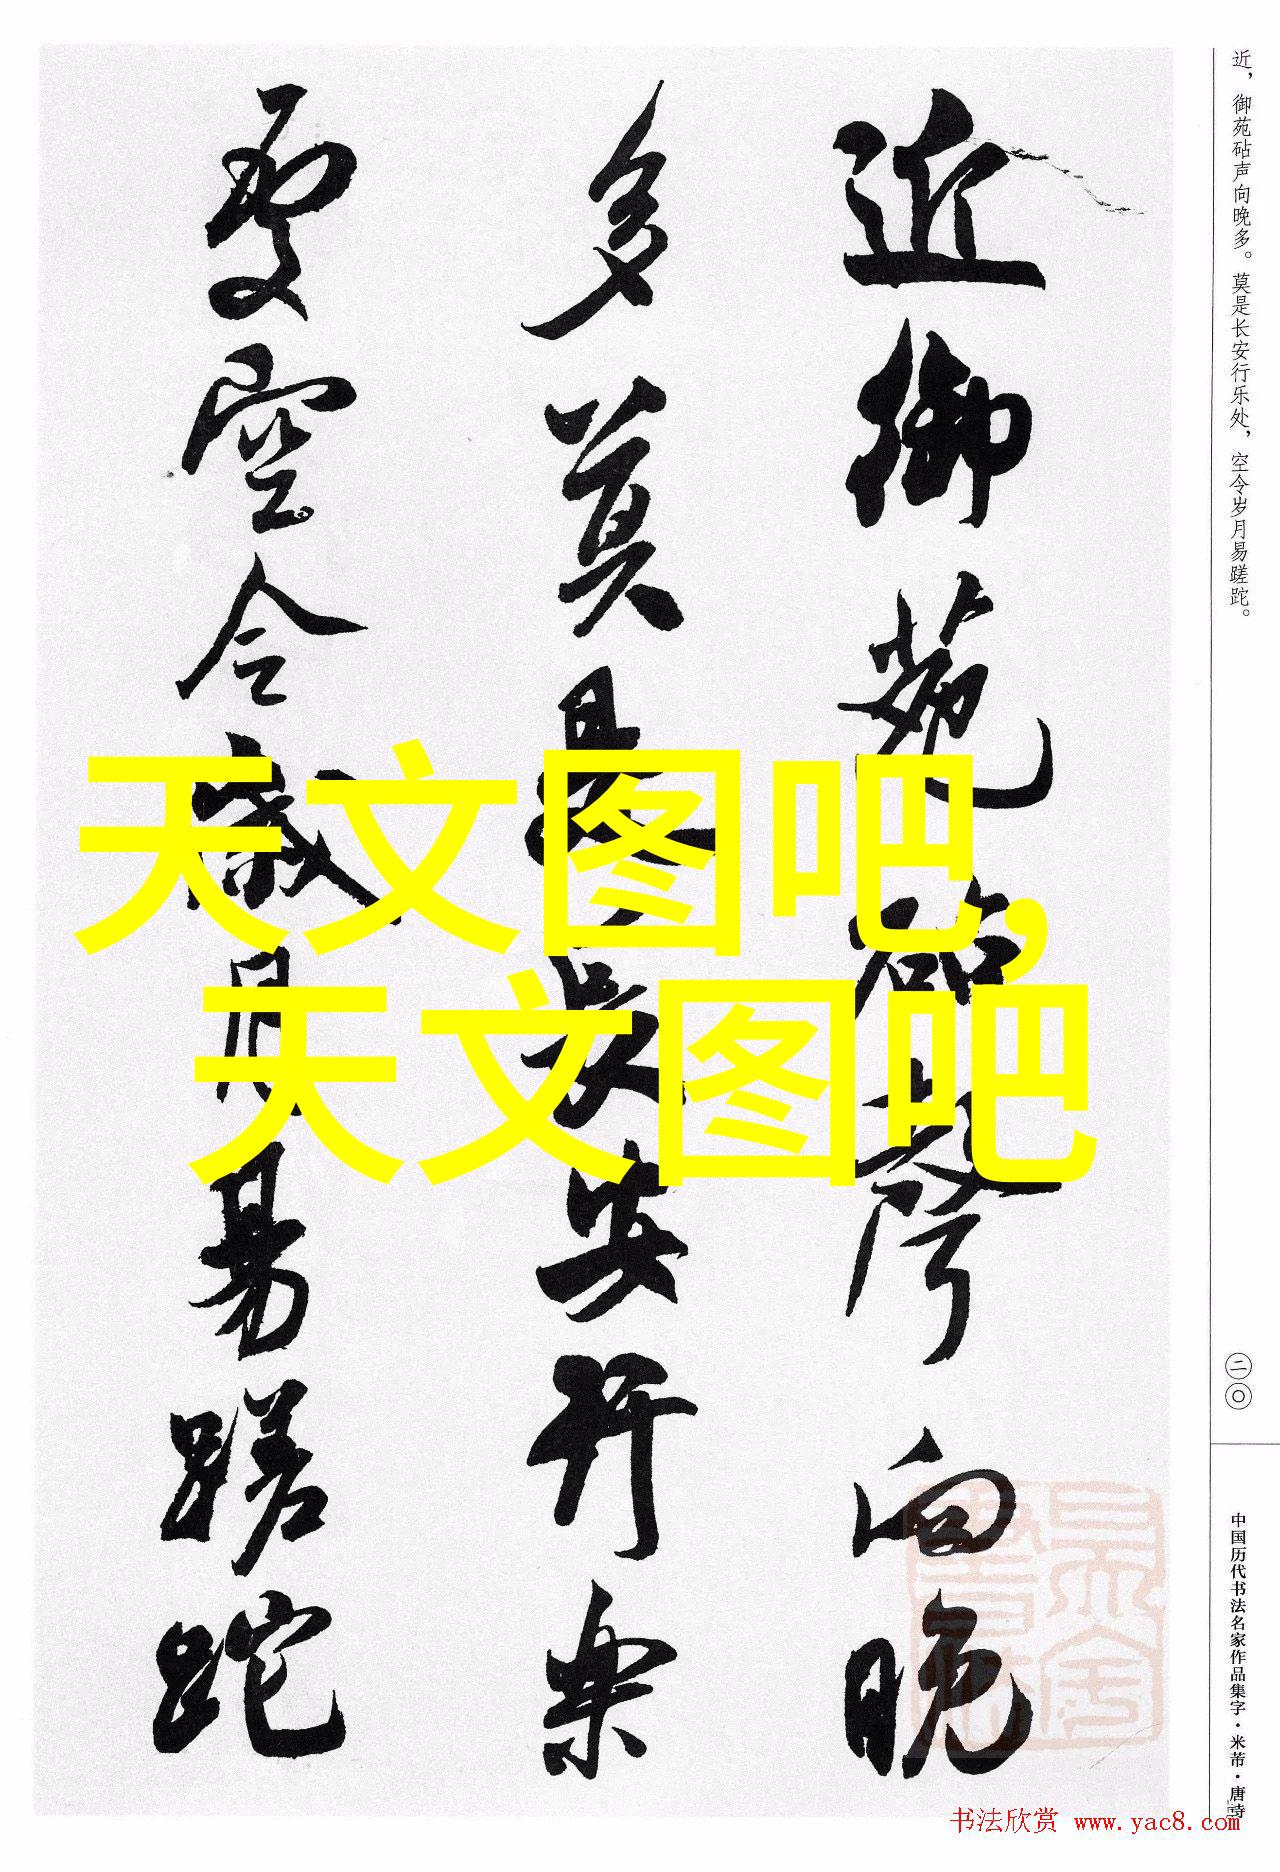 近御苑砧聲向晚
多莫是长安行樂
處空令歲月易蹉跎
天文图吧,
天文图吧
近，御苑砧声向晚多。莫是长安行乐处，空令岁月易蹉跎。
二〇
中国历代书法名家作品集字·米芾·唐诗
书法欣赏 www.yac8.com